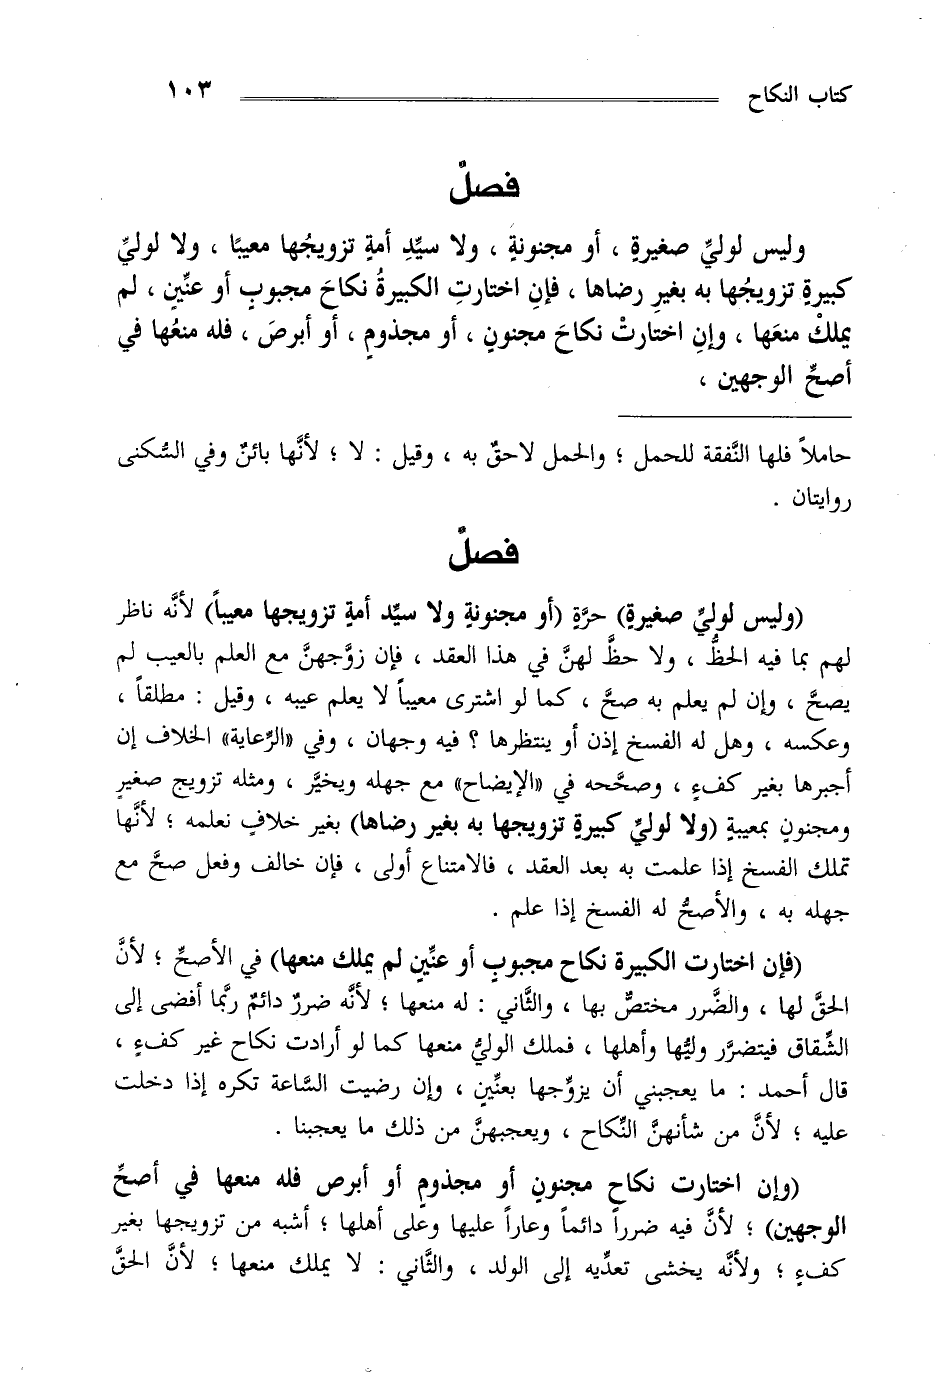 كتاب النكاح ١٠٣
فصلٌ
وليس لوليِّ صغيرةٍ ، أو مجنونةٍ ، ولا سيِّدِ أمةٍ تزويجُها معيبًا ، ولا لوليِّ
كبيرةٍ تزويجُها به بغيرِ رضاها ، فإنِ اختارتِ الكبيرةُ نكاحَ مجبوبٍ أو عنِّينٍ ، لم
يملكْ منعَها ، وإنِ اختارتْ نكاحَ مجنونٍ ، أو مجذومٍ ، أو أبرصَ ، فله منعُها في
أصحِّ الوجهين ،
حاملاً فلها النَّفقة للحمل ؛ والحمل لاحقٌ به ، وقيل : لا ؛ لأنَّها بائنٌ وفي السُّكنى
روايتان .
فصلٌ
(وليس لوليِّ صغيرةٍ) حرَّةٍ (أو مجنونةٍ ولا سيِّد أمةٍ تزويجها معيباً) لأنَّه ناظر
لهم بما فيه الحظُّ ، ولا حظَّ لهنَّ في هذا العقد ، فإن زوَّجهنَّ مع العلم بالعيب لم
يصحَّ ، وإن لم يعلم به صحَّ ، كما لو اشترى معيباً لا يعلم عيبه ، وقيل : مطلقاً ،
وعكسه ، وهل له الفسخ إذن أو ينتظرها ؟ فيه وجهان ، وفي «الرِّعاية» الخلاف إن
أجبرها بغير كفءٍ ، وصحَّحه في «الإيضاح» مع جهله ويخيَّر ، ومثله تزويج صغيرٍ
ومجنونٍ بمعيبةٍ (ولا لوليِّ كبيرةٍ تزويجها به بغير رضاها) بغير خلافٍ نعلمه ؛ لأنَّها
تملك الفسخ إذا علمت به بعد العقد ، فالامتناع أولى ، فإن خالف وفعل صحَّ مع
جهله به ، والأصحُّ له الفسخ إذا علم .
(فإن اختارت الكبيرة نكاح مجبوبٍ أو عنِّينٍ لم يملك منعها) في الأصحِّ ؛ لأنَّ
الحقَّ لها ، والضَّرر مختصٌّ بها ، والثَّاني : له منعها ؛ لأنَّه ضررٌ دائمٌ ربَّما أفضى إلى
الشِّقاق فيتضرَّر وليُّها وأهلها ، فملك الوليُّ منعها كما لو أرادت نكاح غير كفءٍ ،
قال أحمد : ما يعجبني أن يزوِّجها بعنِّينٍ ، وإن رضيت السَّاعة تكره إذا دخلت
عليه ؛ لأنَّ من شأنهنَّ النِّكاح ، ويعجبهنَّ من ذلك ما يعجبنا .
(وإن اختارت نكاح مجنونٍ أو مجذومٍ أو أبرص فله منعها في أصحِّ
الوجهين) ؛ لأنَّ فيه ضرراً دائماً وعاراً عليها وعلى أهلها ؛ أشبه من تزويجها بغير
كفءٍ ؛ ولأنَّه يخشى تعدِّيه إلى الولد ، والثَّاني : لا يملك منعها ؛ لأنَّ الحقَّ